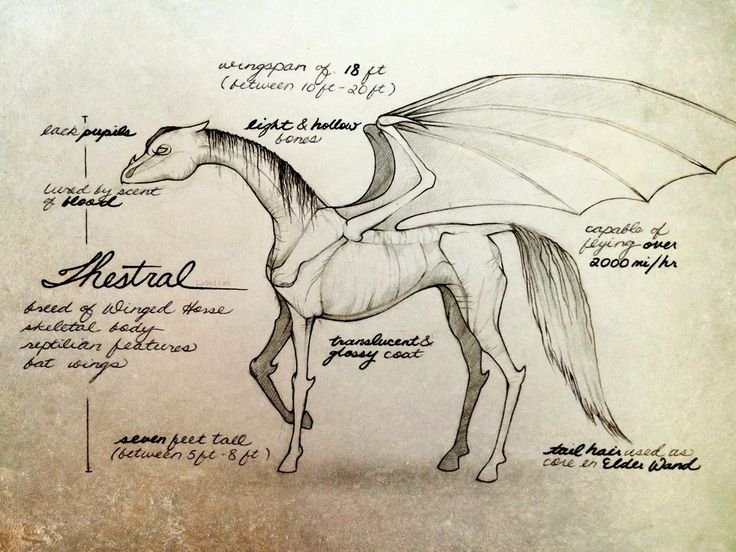 wingspan of 18 ft
(between 10ft-20ft)
light & hollow
bones
lack pupils
lured by scent
of blood
capable of
flying over
2000 mi/hr
Thestral
breed of Winged Horse
skeletal body
reptilian features
bat wings
translucent &
glossy coat
seven feet tall
(between 5ft-8ft)
tail hair used as
core in Elder Wand